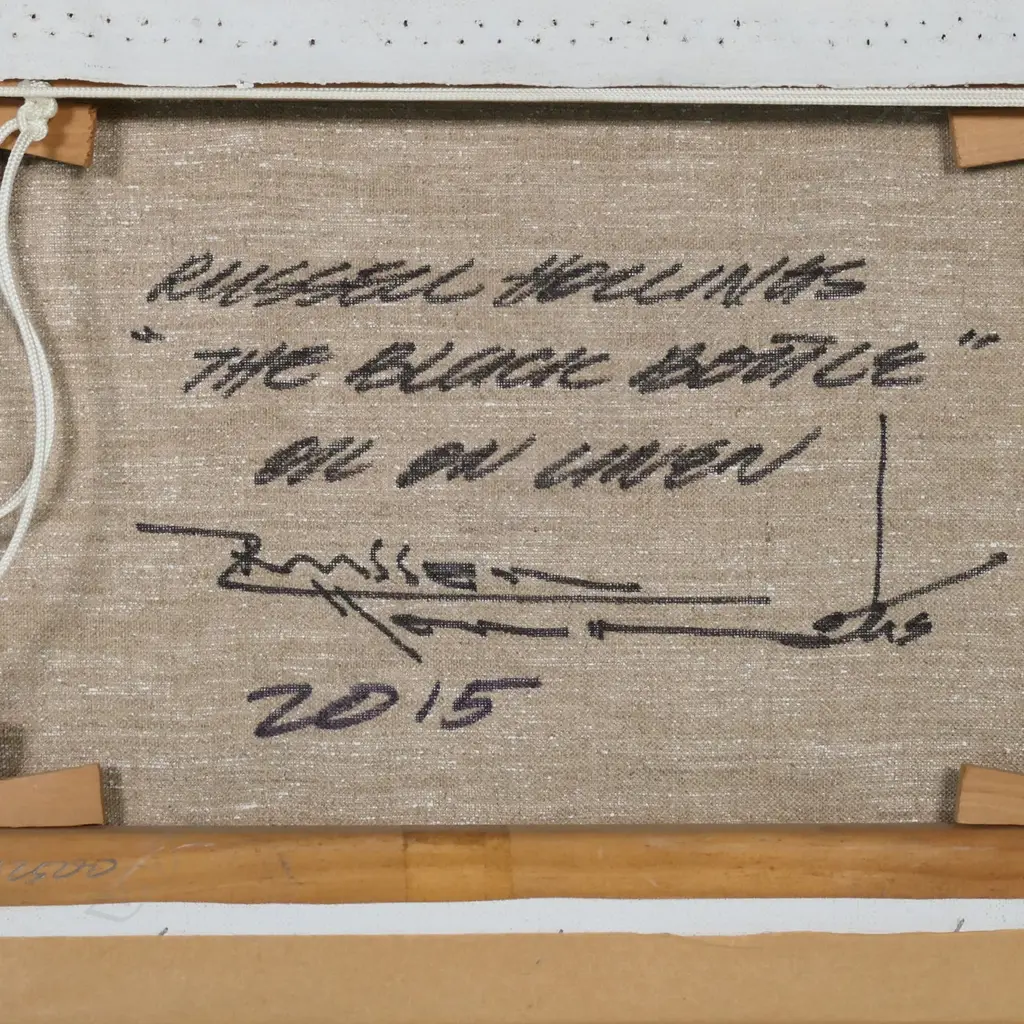 RUSSELL HOLLINGS
"THE BLACK BOTTLE"
OIL ON LINEN
Russell
Hollings
2015